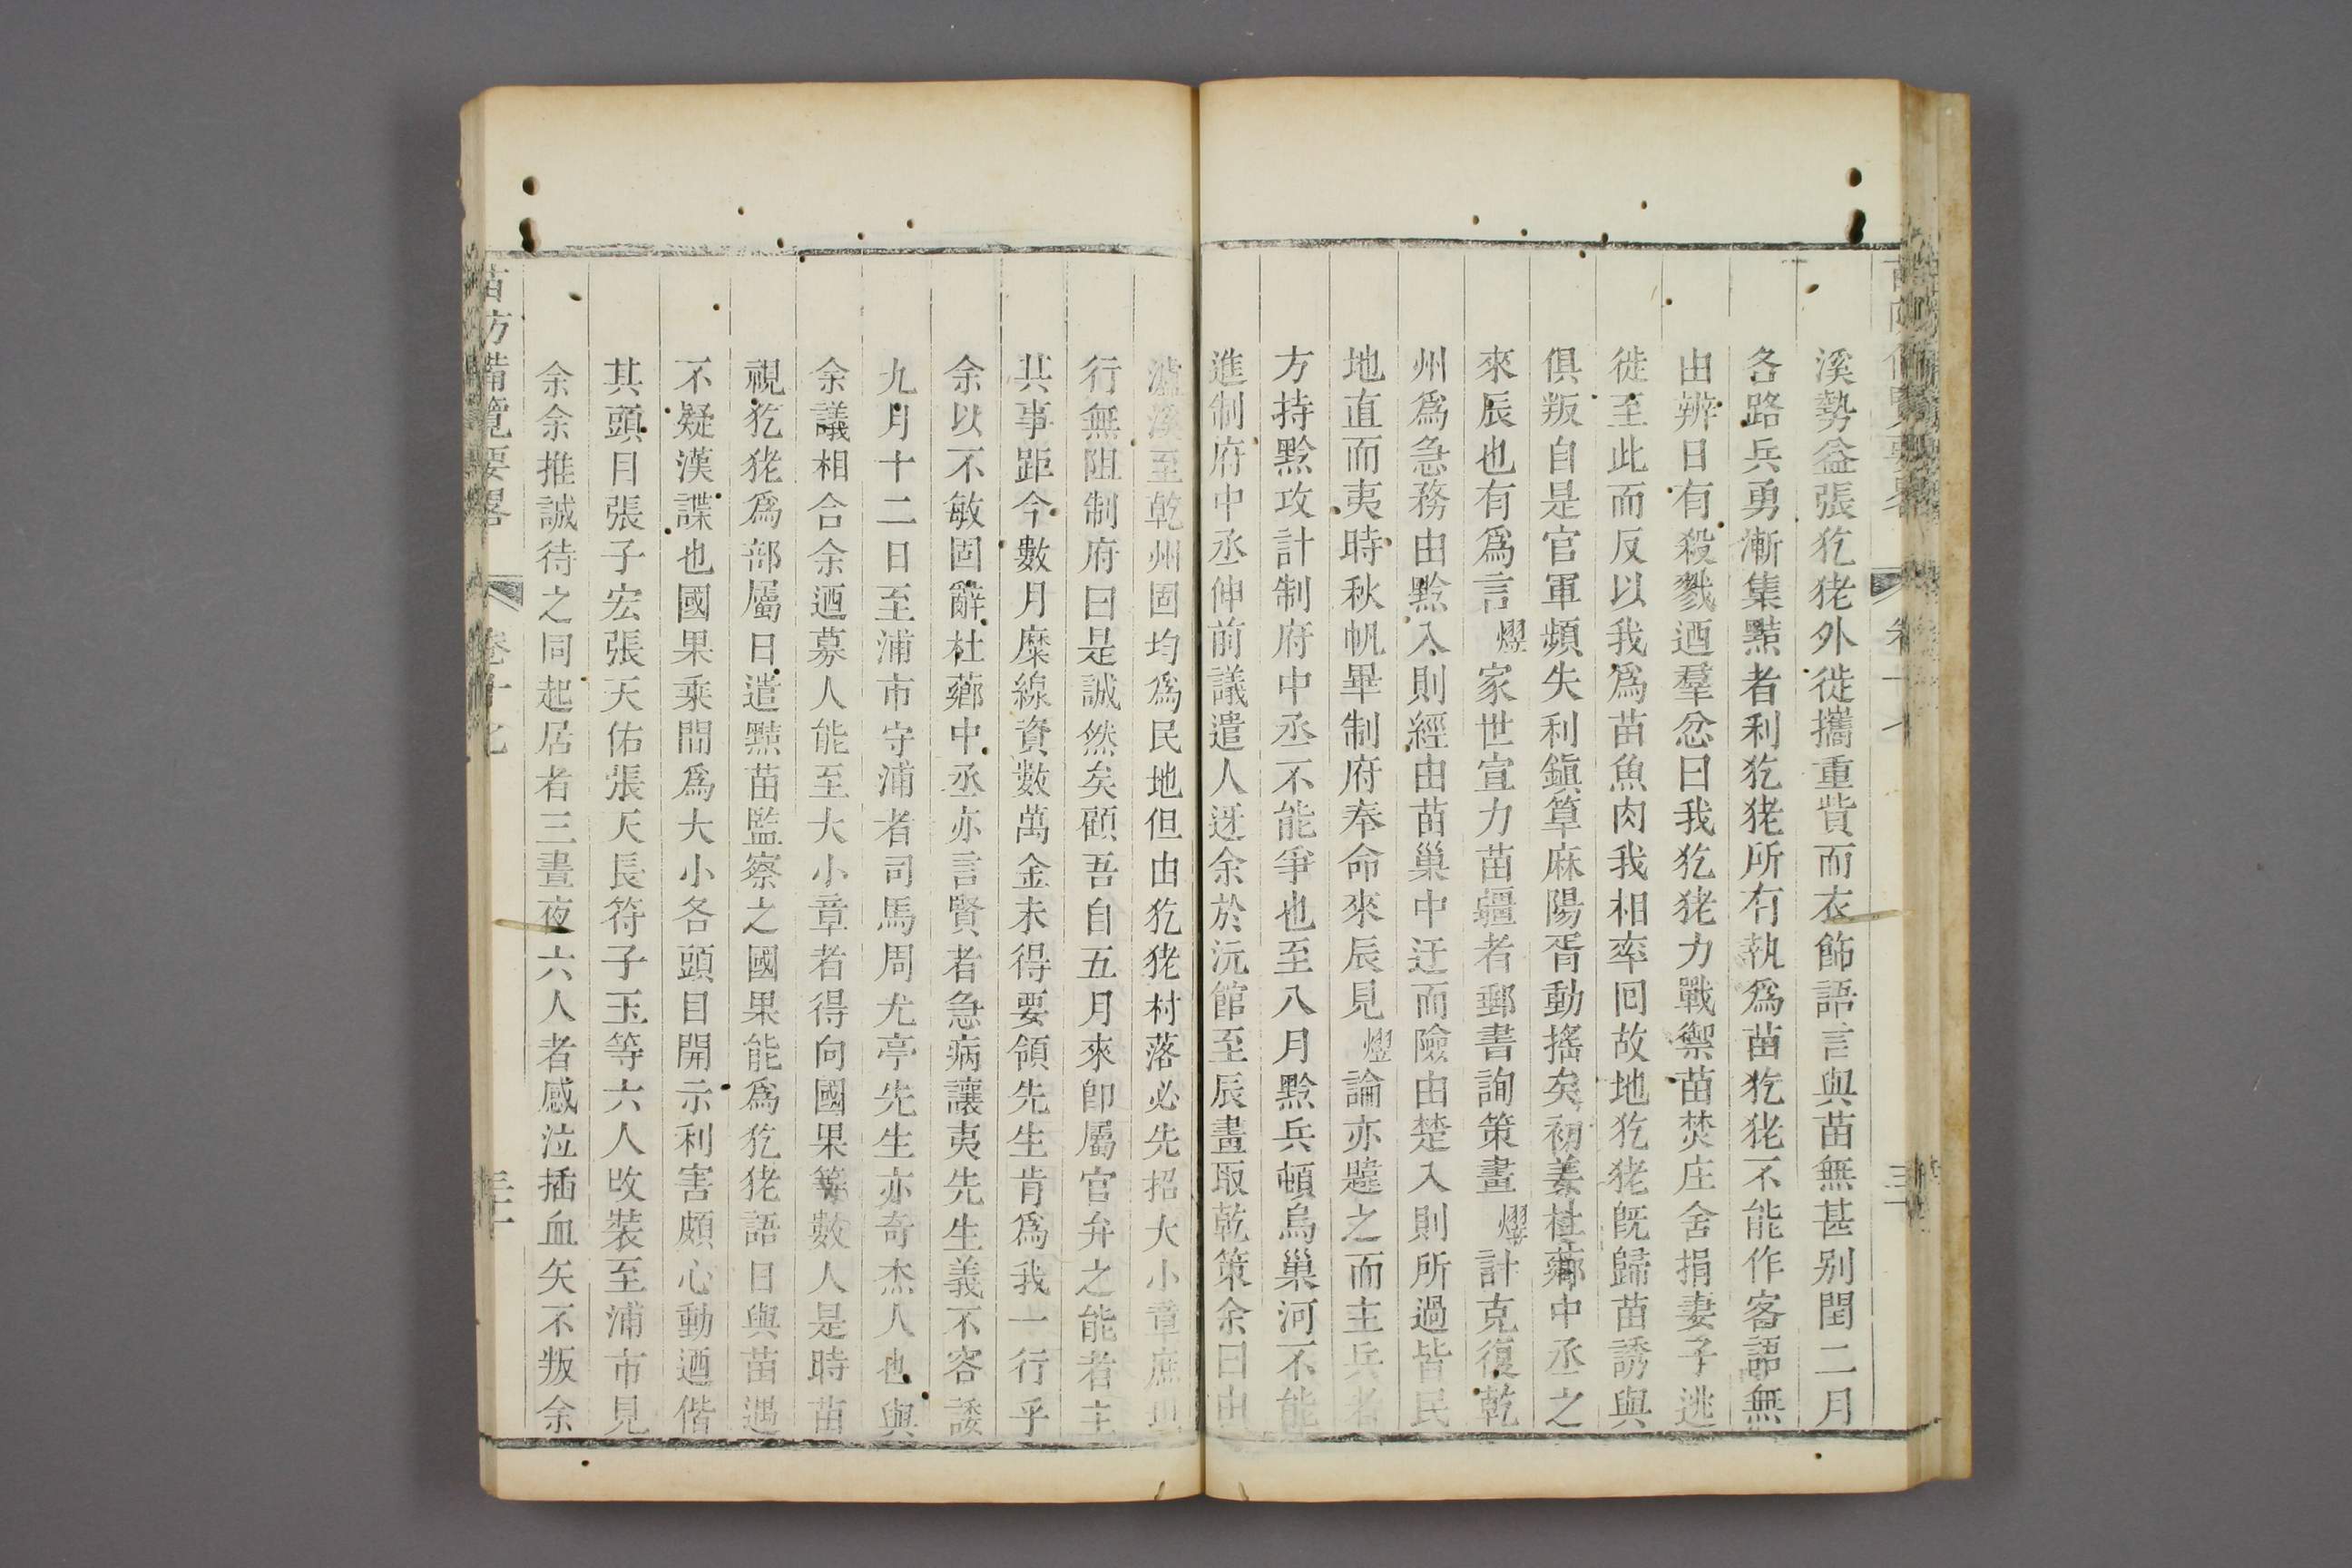 溪勢益張犵狫外徙攜重貲而衣飾語言與苗無甚别閏二月
各路兵勇漸集黠者利犵狫所有執爲苗犵狫不能作客語無
由辨日有殺戮迺羣忿曰我犵狫力戰禦苗焚庄舍捐妻子逃
徙至此而反以我爲苗魚肉我相率回故地犵狫旣歸苗誘與
俱叛自是官軍頻失利鎭筸麻陽胥動搖矣初姜杜薌中丞之
來辰也有爲言燿家世宣力苗疆者郵書詢策畫燿計克復乾
州爲急務由黔入則經由苗巢中迂而險由楚入則所過皆民
地直而夷時秋帆畢制府奉命來辰見燿論亦韙之而主兵者
方持黔攻計制府中丞不能爭也至八月黔兵頓烏巢河不能
進制府中丞伸前議遣人迓余於沅館至辰畫取乾策余曰由
瀘溪至乾州固均爲民地但由犵狫村落必先招大小章庶
行無阻制府曰是誠然矣顧吾自五月來卽屬官弁之能者主
其事距今數月糜線資數萬金未得要領先生肯爲我一行乎
余以不敏固辭杜薌中丞亦言賢者急病讓夷先生義不容諉
九月十二日至浦市守浦者司馬周尤亭先生亦奇杰人也與
余議相合余迺募人能至大小章者得向國果等數人是時苗
視犵狫爲部屬日遣黠苗監察之國果能爲犵狫語日與苗遇
不疑漢諜也國果乘間爲大小各頭目開示利害頗心動迺偕
其頭目張子宏張天佑張天長符子玉等六人改装至浦市見
余余推誠待之同起居者三晝夜六人者感泣插血矢不叛余
苗方備覽要畧 卷十七